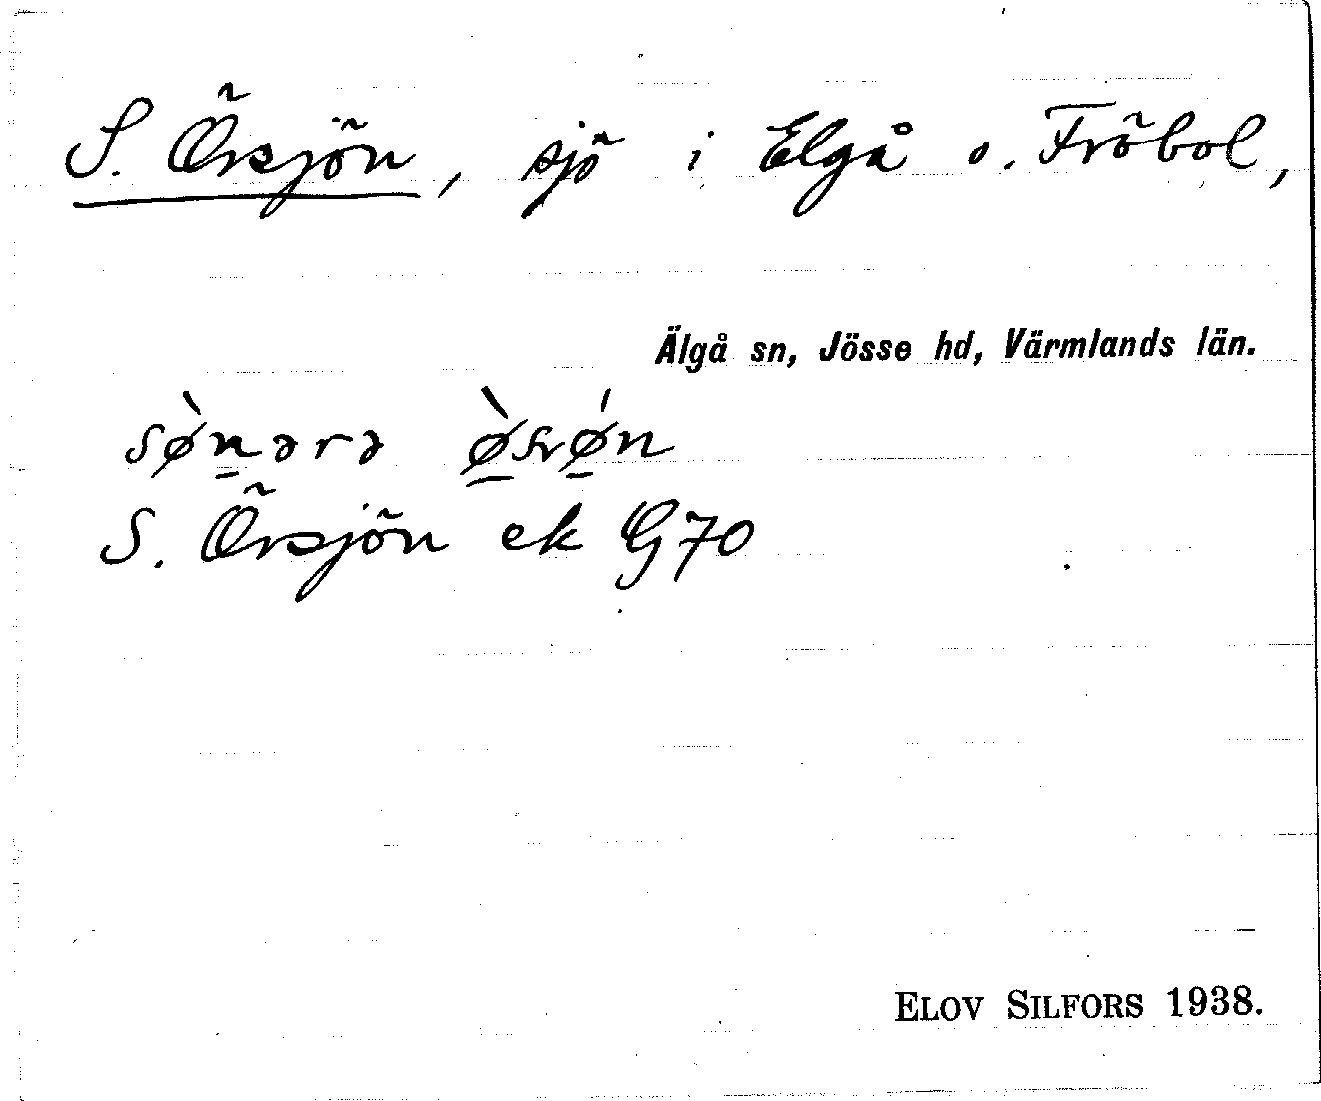 S. Örsjön, sjö i Elgå o. Fröbol,
Älgå sn, Jösse hd, Värmlands län.
sø̀nərə
S. Örsjön ek G70
ELOV SILFORS 1938.